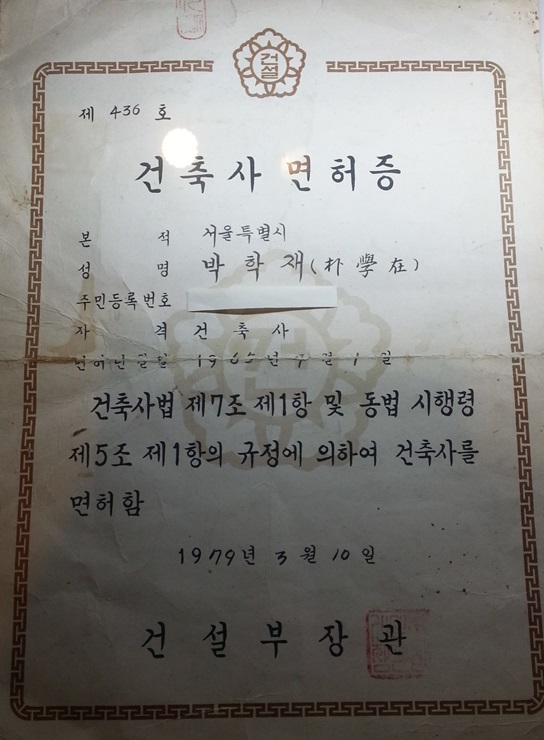 건설
제 436 호
건축사 면허증
본 적 서울특별시
성 명 박 학 재 (朴 學 在)
주민등록번호
자 격 건 축 사
면허년월일 1965년 월 1일
건축사법 제7조 제1항 및 동법 시행령
제5조 제1항의 규정에 의하여 건축사를
면허함
1979년 3월 10일
건 설 부 장 관